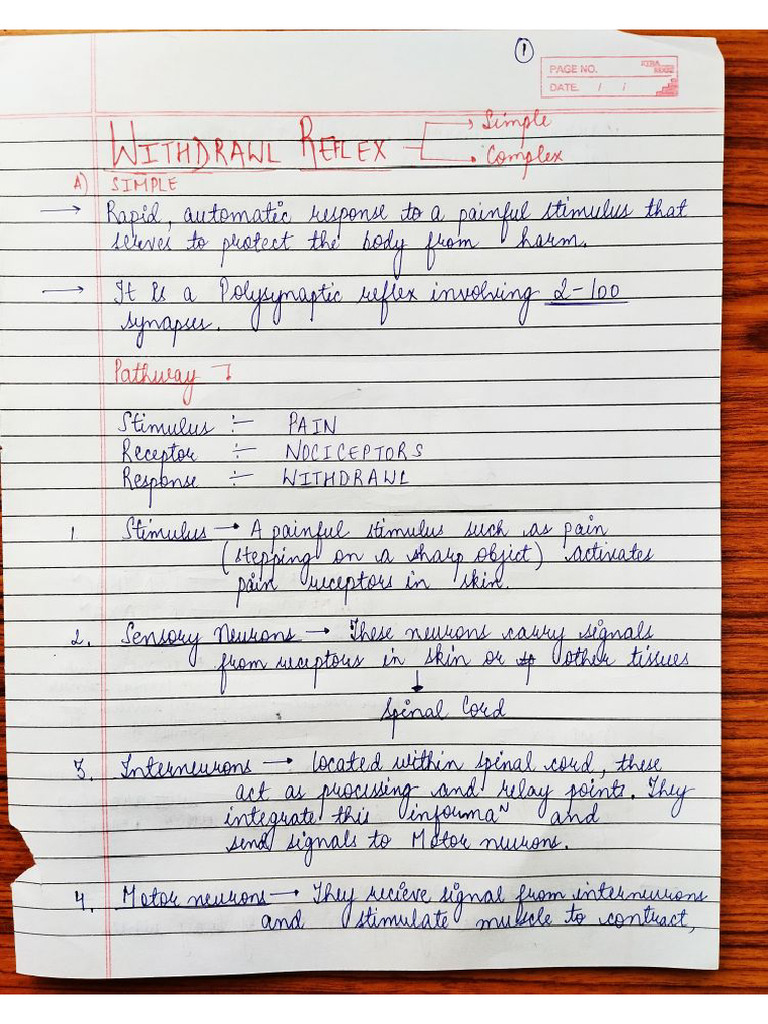 1
PAGE NO.
DATE / /
WITHDRAWL REFLEX → Simple
→ Complex
A) SIMPLE
→ Rapid, automatic response to a painful stimulus that
serves to protect the body from harm.
→ It is a Polysynaptic reflex involving 2-100
synapses.
Pathway
Stimulus :- PAIN
Receptor :- NOCICEPTORS
Response :- WITHDRAWL
1. Stimulus → A painful stimulus such as pain
(stepping on a sharp object) activates
pain receptors in skin.
2. Sensory Neurons → These neurons carry signals
from receptors in skin or other tissues
↓
Spinal Cord
3. Interneurons → located within spinal cord, these
act as processing and relay points. They
integrate this informa~ and
send signals to Motor neurons.
4. Motor neurons → They recieve signal from interneurons
and stimulate muscle to contract,